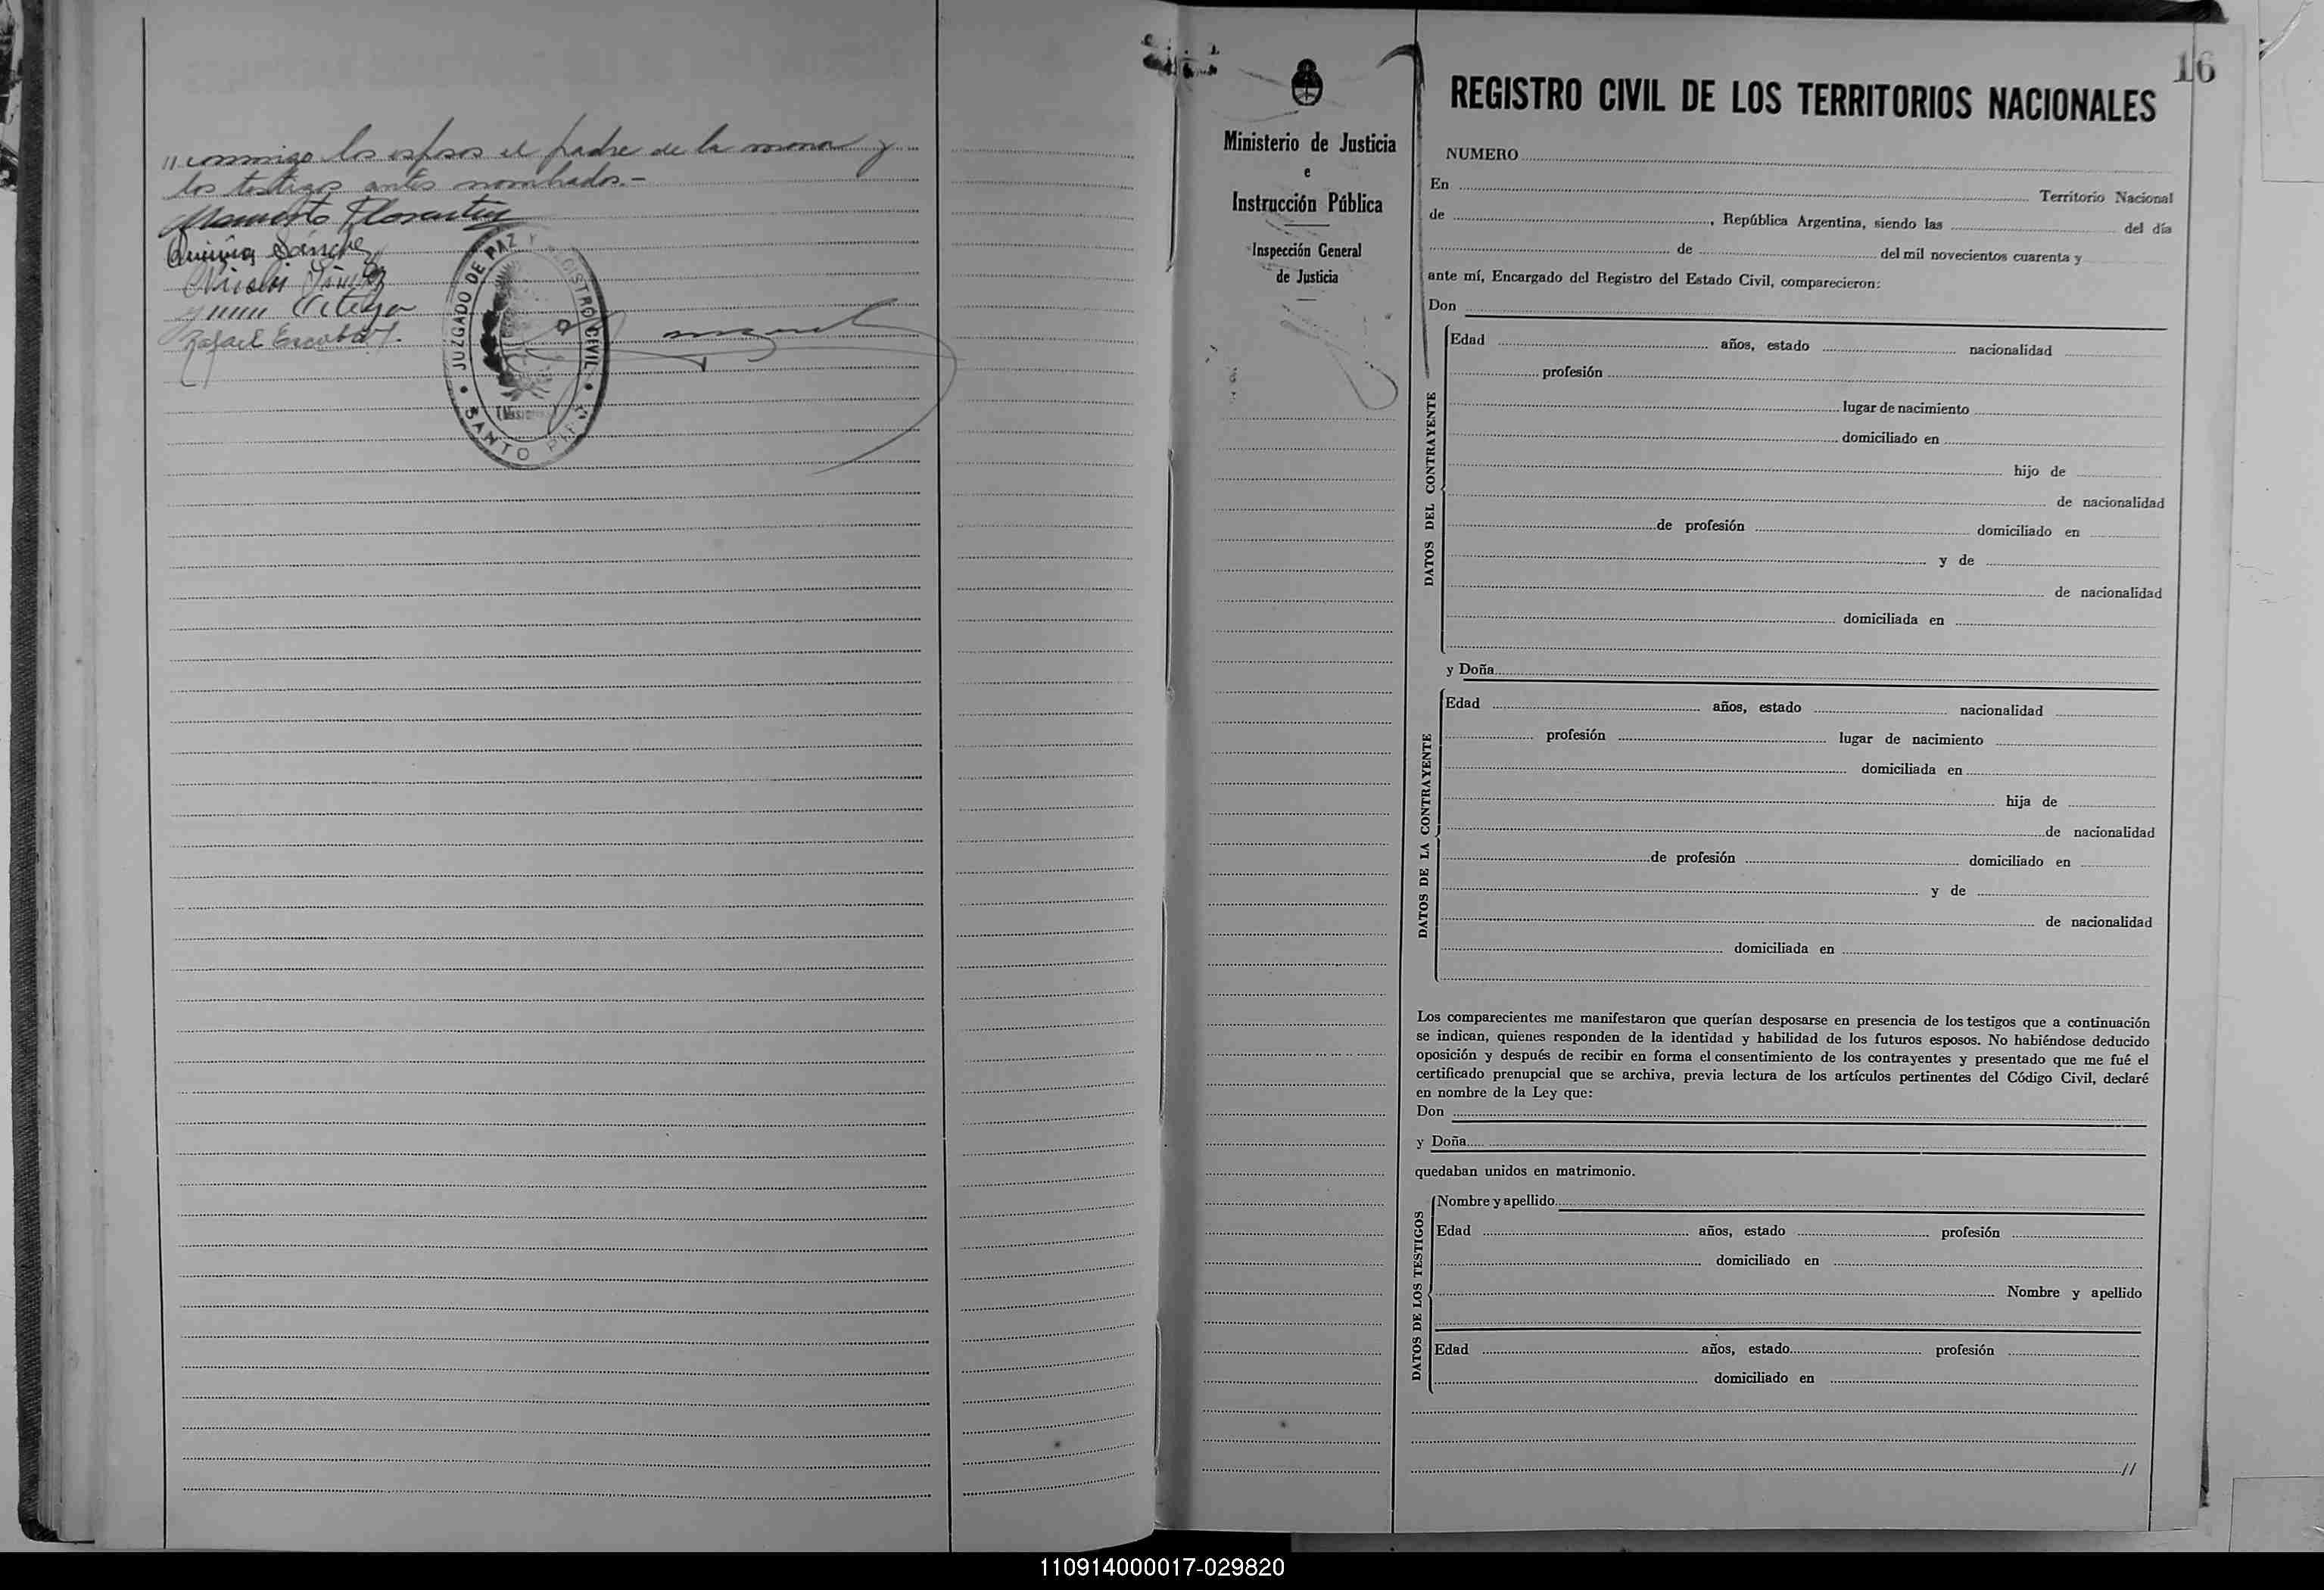 // conmigo los esposos el padre de la menor y
los testigos antes nombrados.-
Florentin
Sánchez
Rafael Escobar
JUZGADO DE PAZ Y REGISTRO CIVIL
SANTO PIPÓ
(Misiones)
16
Ministerio de Justicia
e
Instrucción Pública
Inspección General
de Justicia
REGISTRO CIVIL DE LOS TERRITORIOS NACIONALES
NUMERO
En Territorio Nacional
de , República Argentina, siendo las del día
de del mil novecientos cuarenta y
ante mí, Encargado del Registro del Estado Civil, comparecieron:
Don
DATOS DEL CONTRAYENTE
Edad años, estado nacionalidad
profesión
lugar de nacimiento
domiciliado en
hijo de
de nacionalidad
de profesión domiciliado en
y de
de nacionalidad
domiciliada en
y Doña
DATOS DE LA CONTRAYENTE
Edad años, estado nacionalidad
profesión lugar de nacimiento
domiciliada en
hija de
de nacionalidad
de profesión domiciliado en
y de
de nacionalidad
domiciliada en
Los comparecientes me manifestaron que querían desposarse en presencia de los testigos que a continuación
se indican, quienes responden de la identidad y habilidad de los futuros esposos. No habiéndose deducido
oposición y después de recibir en forma el consentimiento de los contrayentes y presentado que me fué el
certificado prenupcial que se archiva, previa lectura de los artículos pertinentes del Código Civil, declaré
en nombre de la Ley que:
Don
y Doña
quedaban unidos en matrimonio.
DATOS DE LOS TESTIGOS
Nombre y apellido
Edad años, estado profesión
domiciliado en
Nombre y apellido
Edad años, estado profesión
domiciliado en
//
110914000017-029820